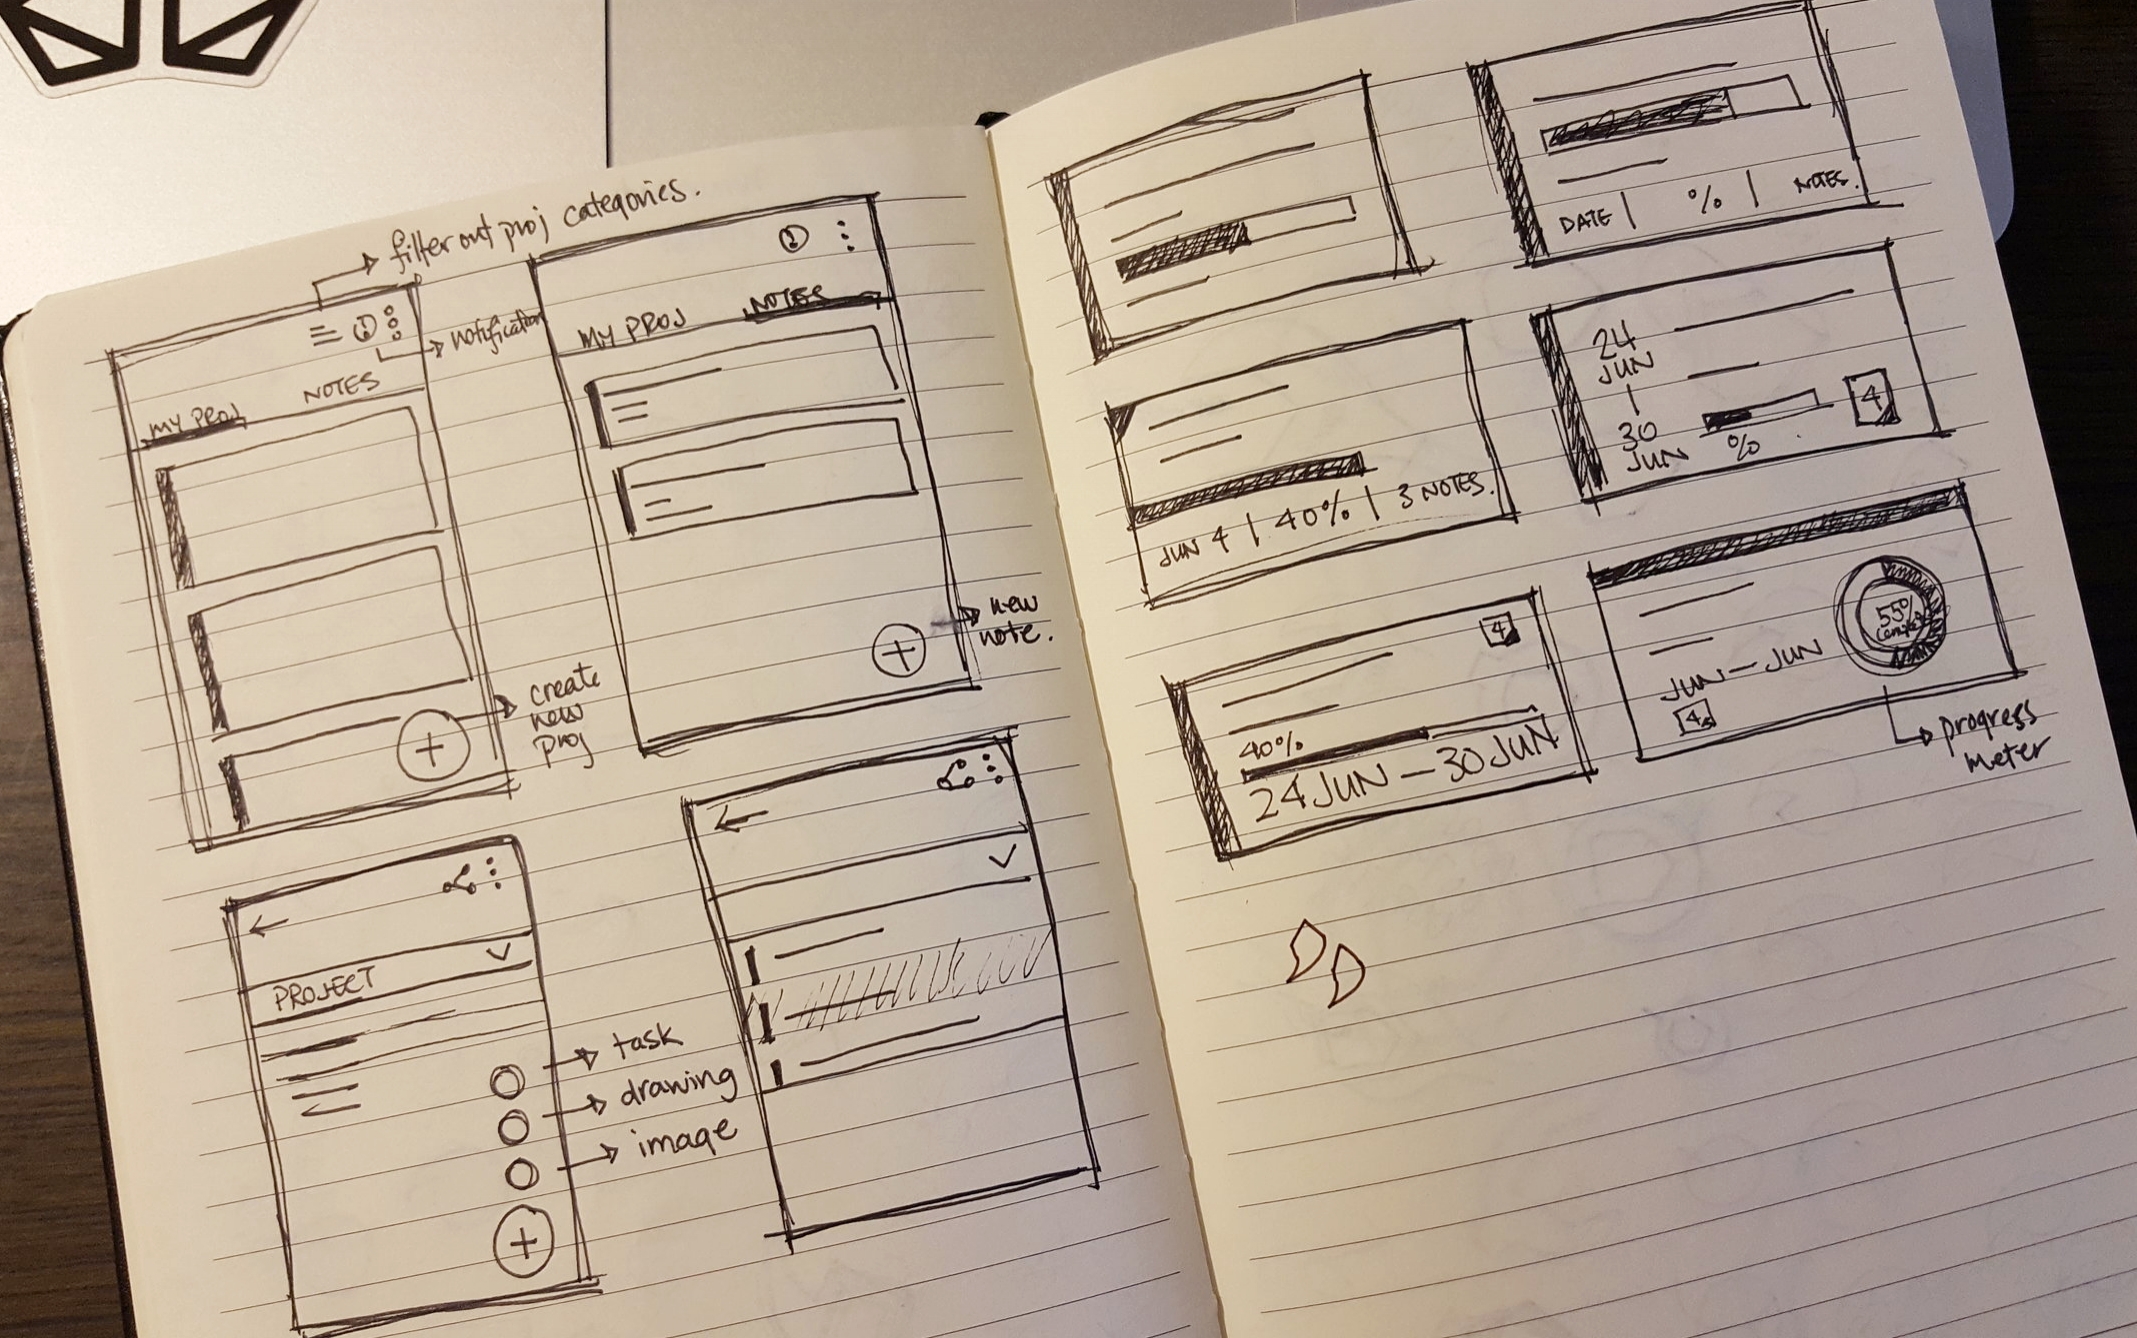 filter out proj categories.
notification
NOTES
MY PROJ
create
new
proj
NOTES
MY PROJ
new
note.
PROJECT
task
drawing
image
DATE | % | NOTES.
JUN 4 | 40% | 3 NOTES.
24
JUN
|
30
JUN
%
4
4
40%
24 JUN — 30 JUN
55%
JUN — JUN
4
progress
meter